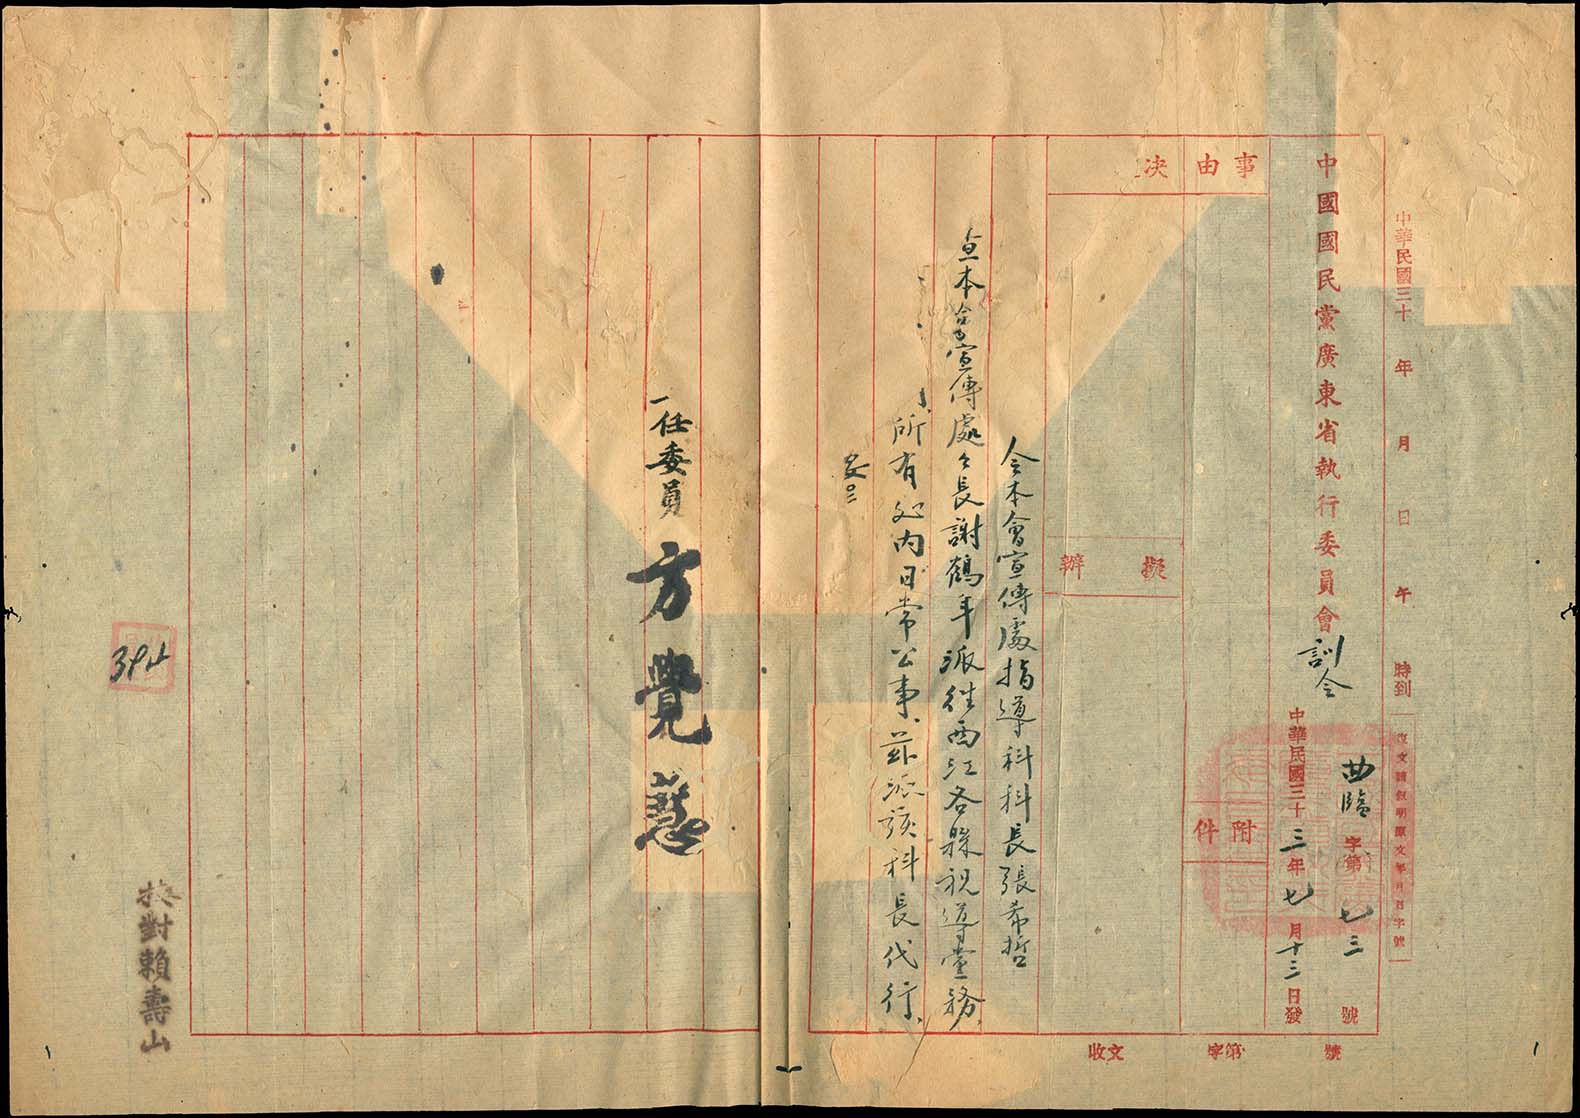 中華民國三十 年 月 日 午 時到
復文請敘明原文年月日字號
中國國民黨廣東省執行委員會訓令
曲臨字第七三號
中華民國三十三年七月十三日發
事由
附件
決
擬辦
令本會宣傳處指導科科長張希哲
查本會宣傳處々長謝鶴年派往西江各縣視導黨務、
所有处内日常公事、茲派該科長代行、
任委員 方覺慧
394
校對賴壽山
收文 字第 號